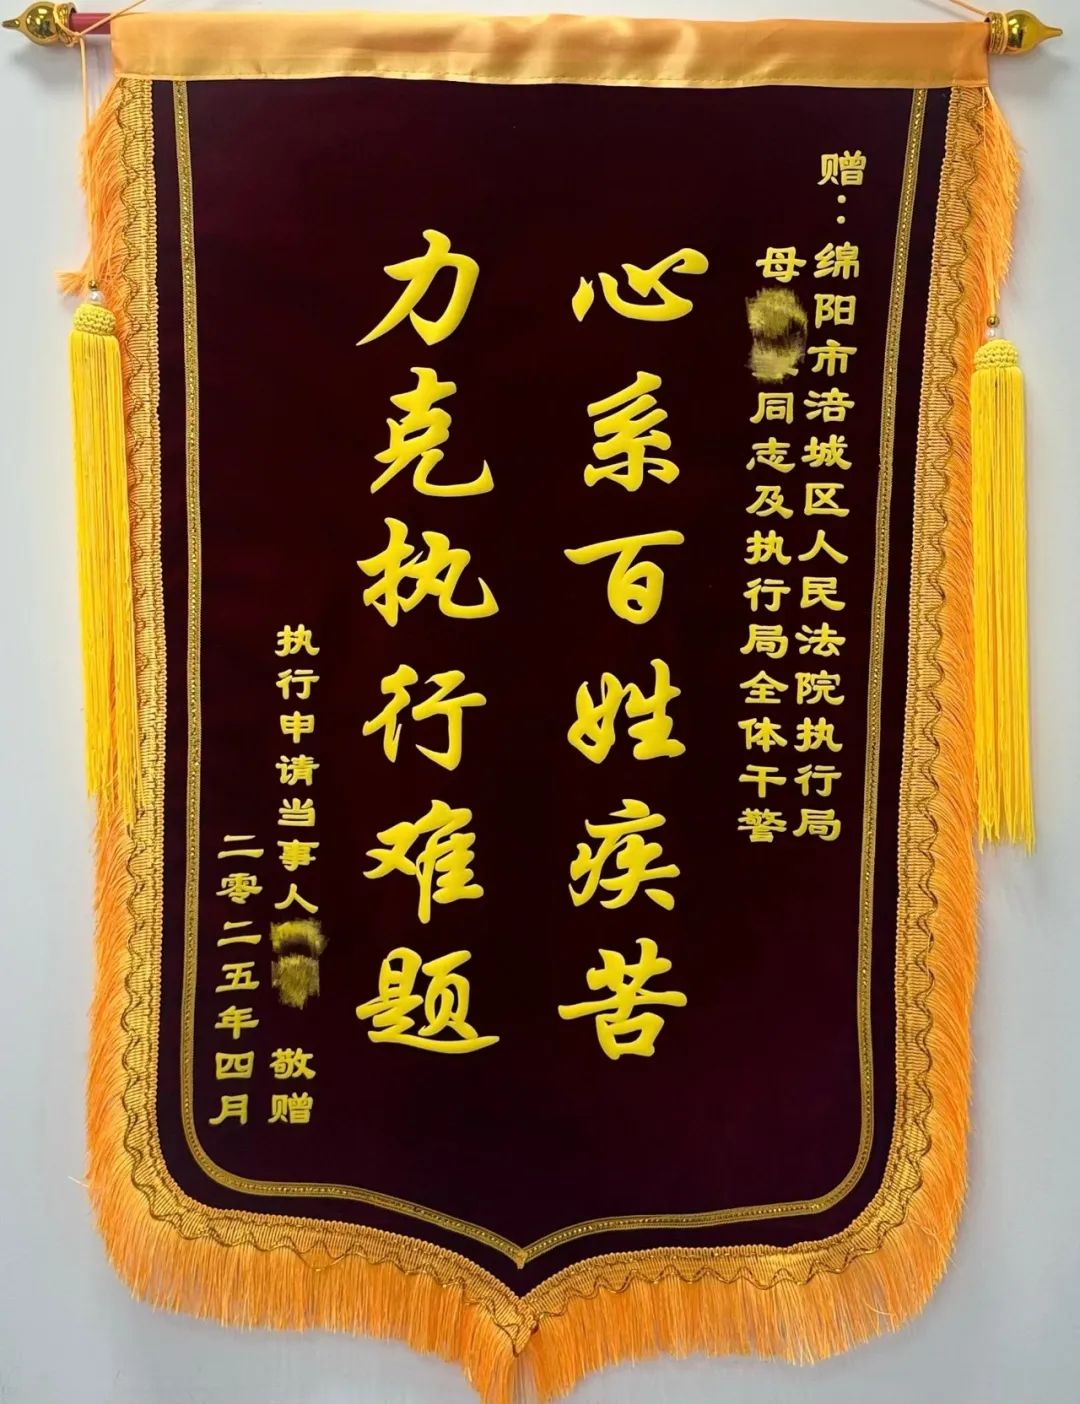 赠：绵阳市涪城区人民法院执行局
母同志及执行局全体干警
心系百姓疾苦
力克执行难题
执行申请当事人 敬赠
二零二五年四月